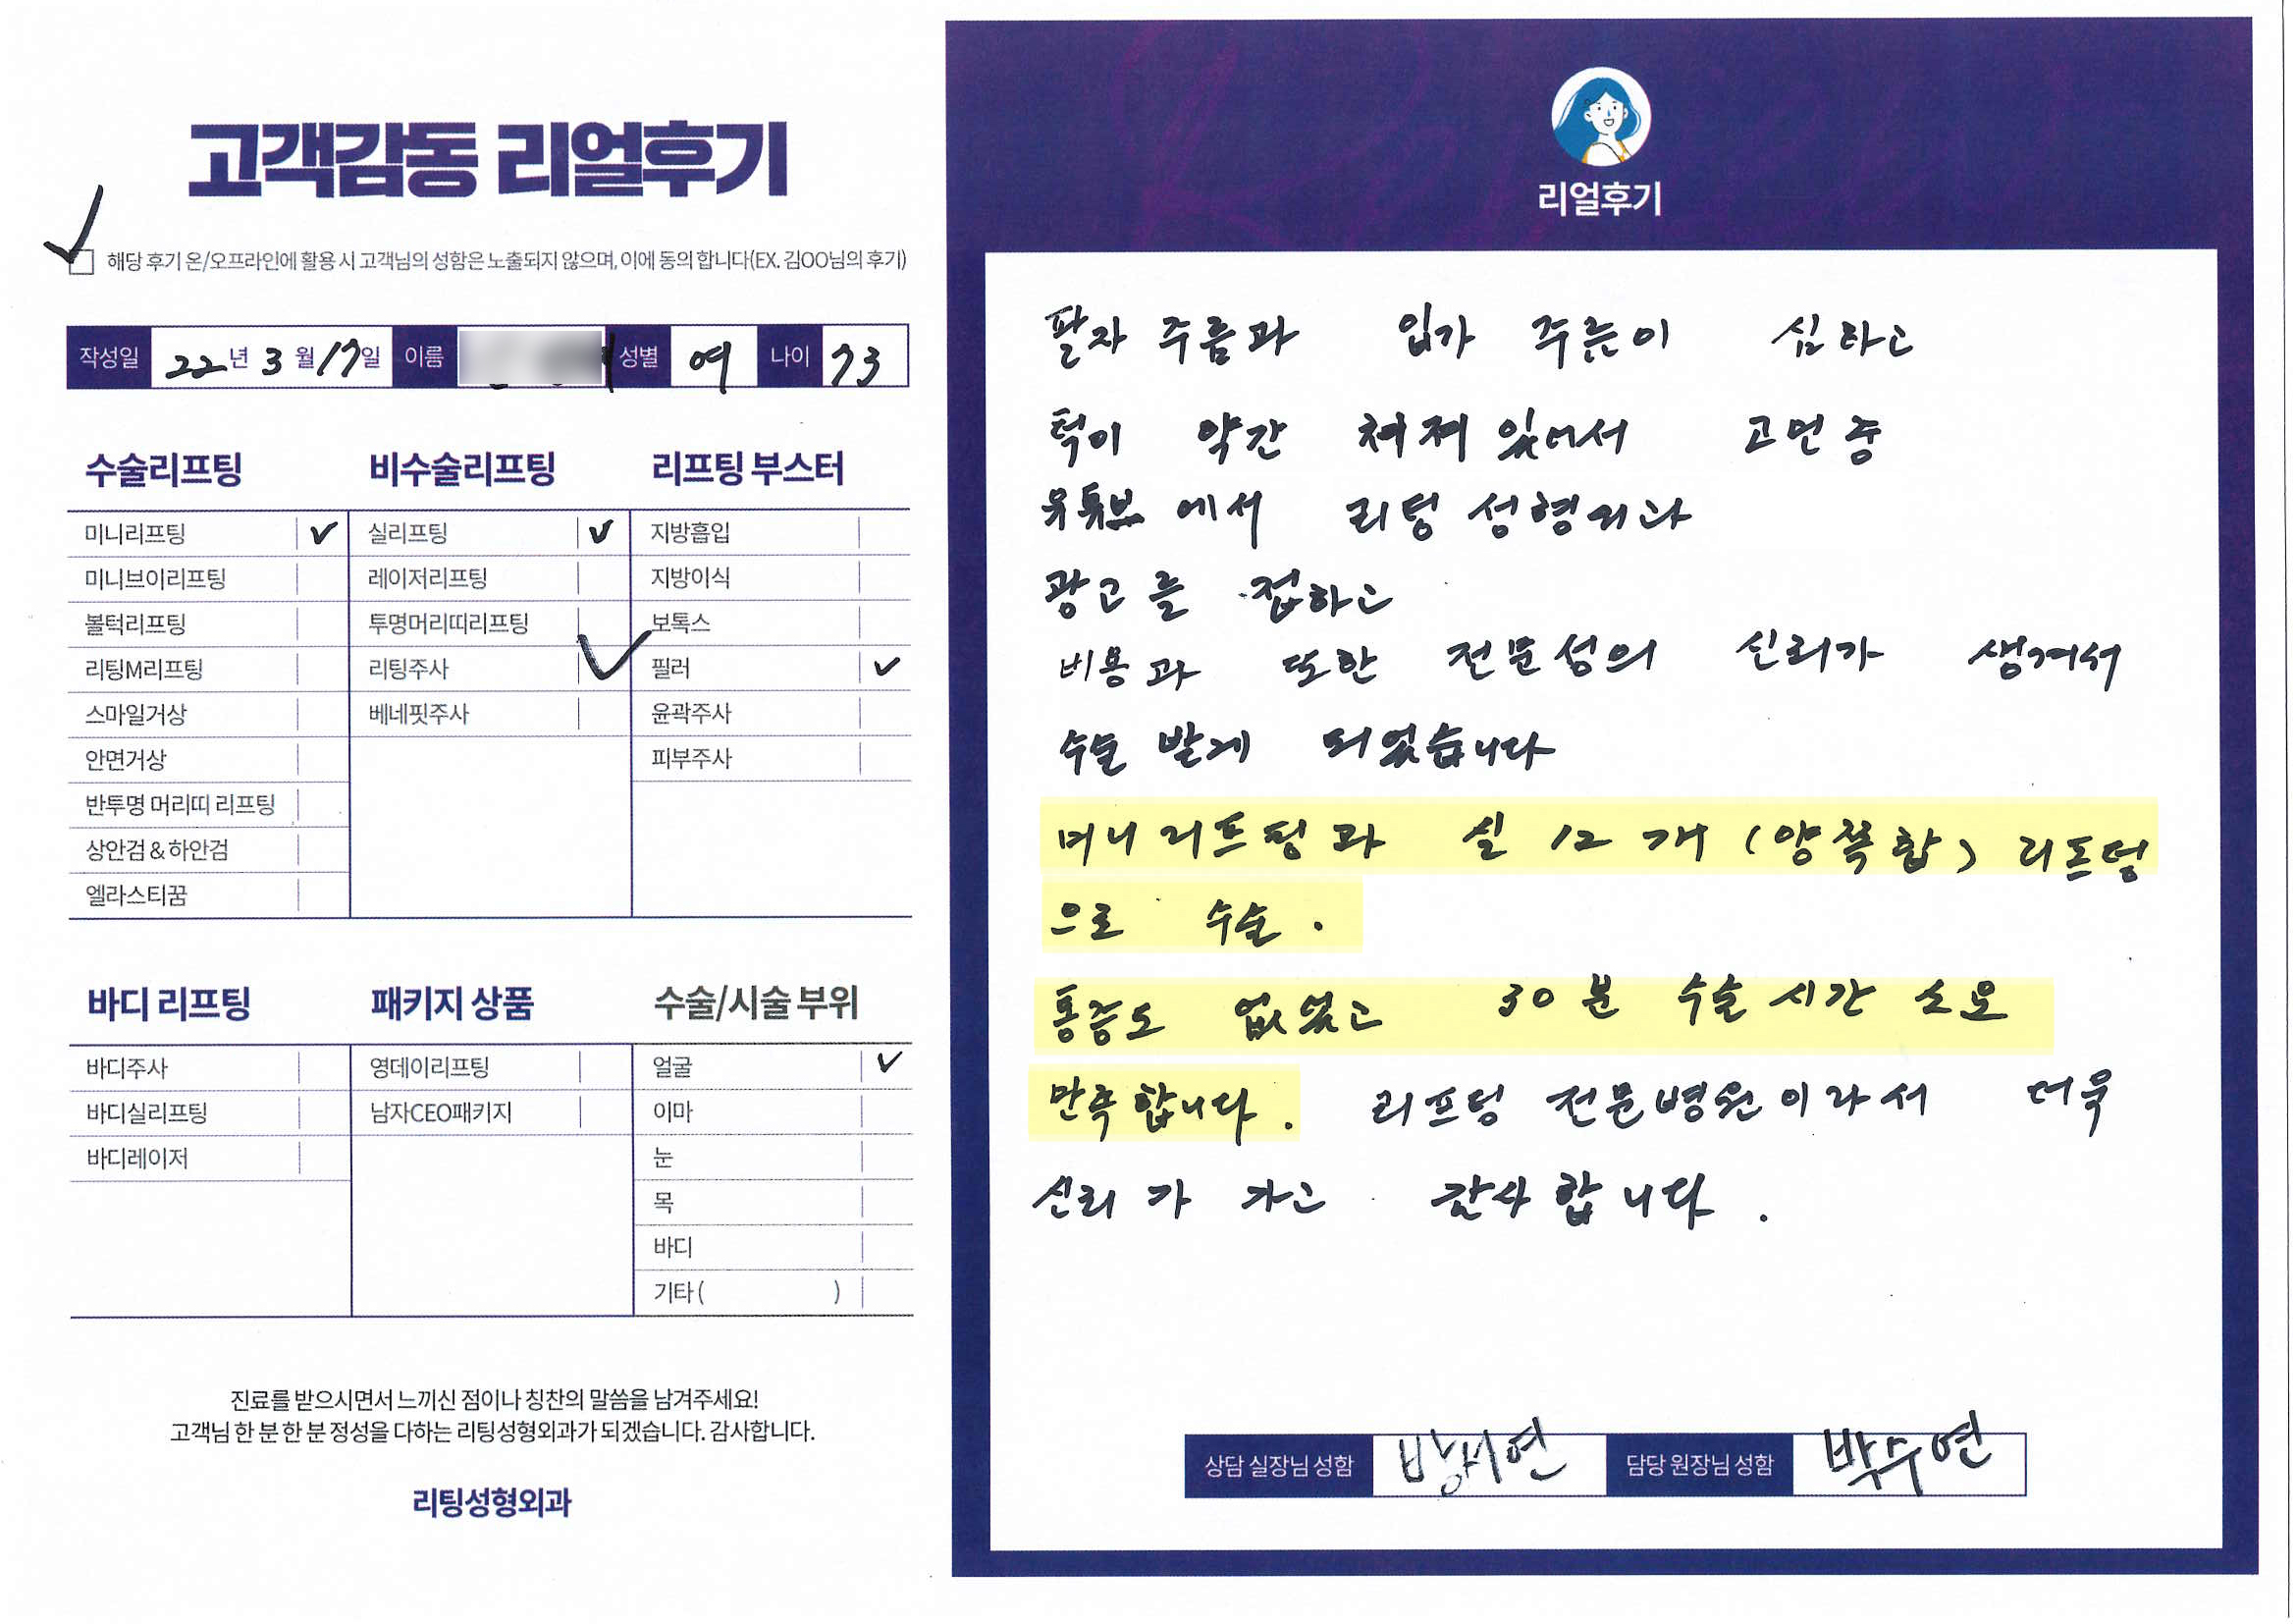 고객감동 리얼후기
해당 후기 온/오프라인에 활용 시 고객님의 성함은 노출되지 않으며, 이에 동의 합니다(EX. 김OO님의 후기)
작성일 22년 3월 17일 이름 성별 여 나이 73
수술리프팅
미니리프팅 ✓
미니브이리프팅
볼턱리프팅
리팅M리프팅
스마일거상
안면거상
반투명 머리띠 리프팅
상안검 & 하안검
엘라스티꿈
비수술리프팅
실리프팅 ✓
레이저리프팅
투명머리띠리프팅
리팅주사 ✓
베네핏주사
리프팅 부스터
지방흡입
지방이식
보톡스
필러 ✓
윤곽주사
피부주사
바디 리프팅
바디주사
바디실리프팅
바디레이저
패키지 상품
영데이리프팅
남자CEO패키지
수술/시술 부위
얼굴 ✓
이마
눈
목
바디
기타 ( )
진료를 받으시면서 느끼신 점이나 칭찬의 말씀을 남겨주세요!
고객님 한 분 한 분 정성을 다하는 리팅성형외과가 되겠습니다. 감사합니다.
리팅성형외과
리얼후기
팔자 주름과 입가 주름이 심하고
턱이 약간 쳐져 있어서 고민중
유튜브에서 리팅 성형외과
광고를 접하고
비용과 또한 전문성의 신뢰가 생겨서
수술 받게 되었습니다
미니리프팅과 실 12개 (양쪽합) 리프팅
으로 수술.
통증도 없었고 30분 수술시간 소요
만족합니다. 리프팅 전문병원이라서 더욱
신뢰가 가고 감사합니다.
상담 실장님 성함 방서연 담당 원장님 성함 박수연